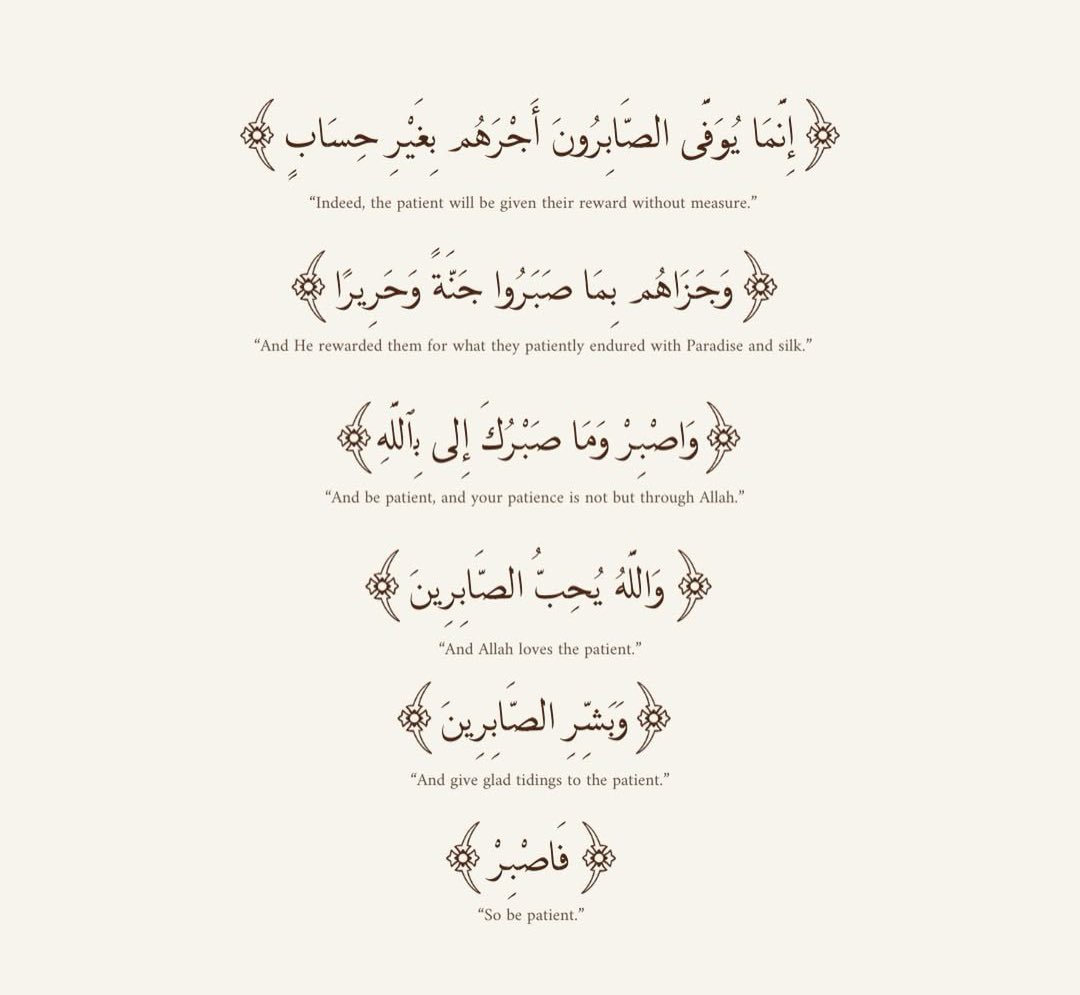 ﴿ إِنَّمَا يُوَفَّى الصَّابِرُونَ أَجْرَهُم بِغَيْرِ حِسَابٍ ﴾
“Indeed, the patient will be given their reward without measure.”
﴿ وَجَزَاهُم بِمَا صَبَرُوا جَنَّةً وَحَرِيرًا ﴾
“And He rewarded them for what they patiently endured with Paradise and silk.”
﴿ وَاصْبِرْ وَمَا صَبْرُكَ إِلى بِٱللَّهِ ﴾
“And be patient, and your patience is not but through Allah.”
﴿ وَاللَّهُ يُحِبُّ الصَّابِرِينَ ﴾
“And Allah loves the patient.”
﴿ وَبَشِّرِ الصَّابِرِينَ ﴾
“And give glad tidings to the patient.”
﴿ فَاصْبِرْ ﴾
“So be patient.”